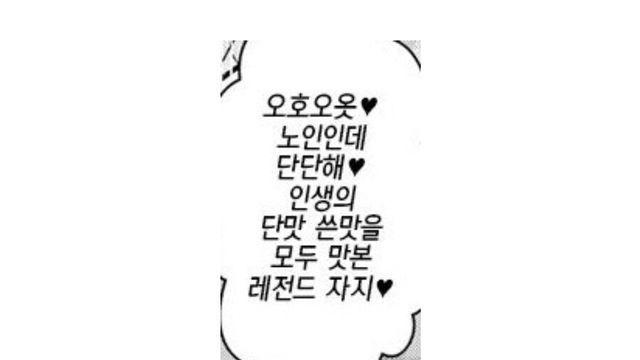 오호오옷♥
노인인데
단단해♥
인생의
단맛 쓴맛을
모두 맛본
레전드 자지♥